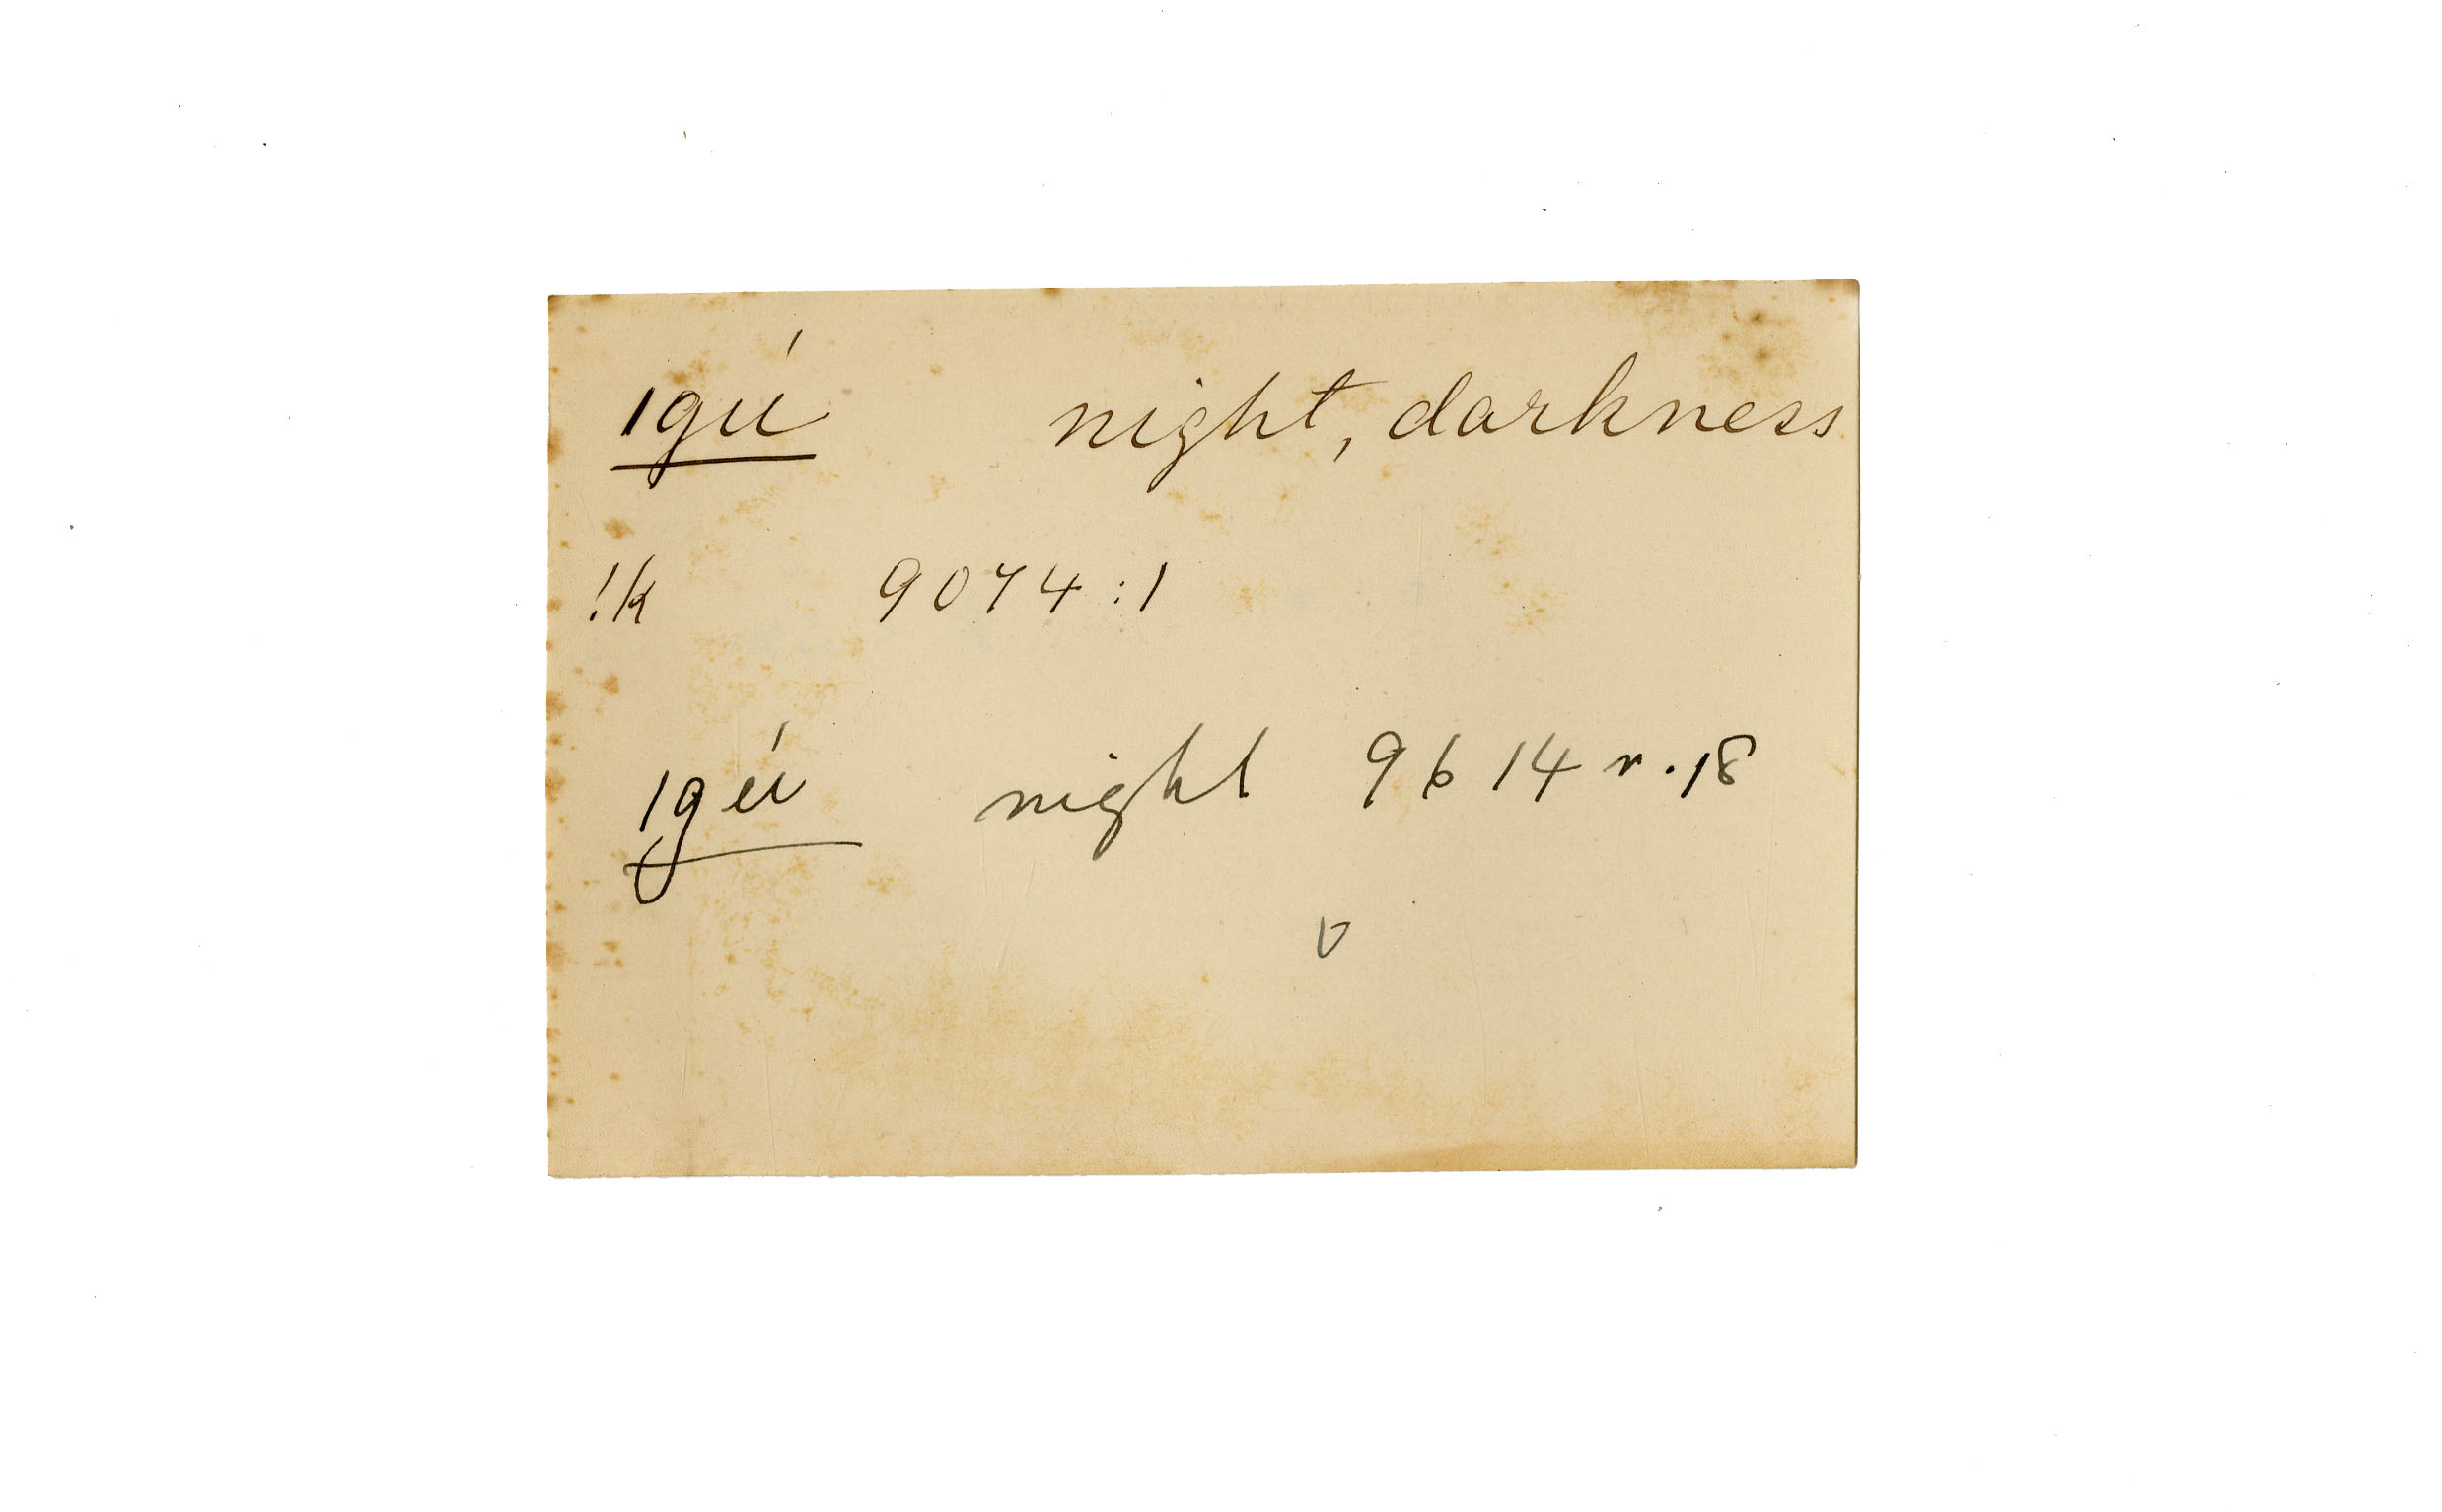 ꞁgú night, darkness
!k 9074:1
ꞁgéi night 9614 r. 18
v